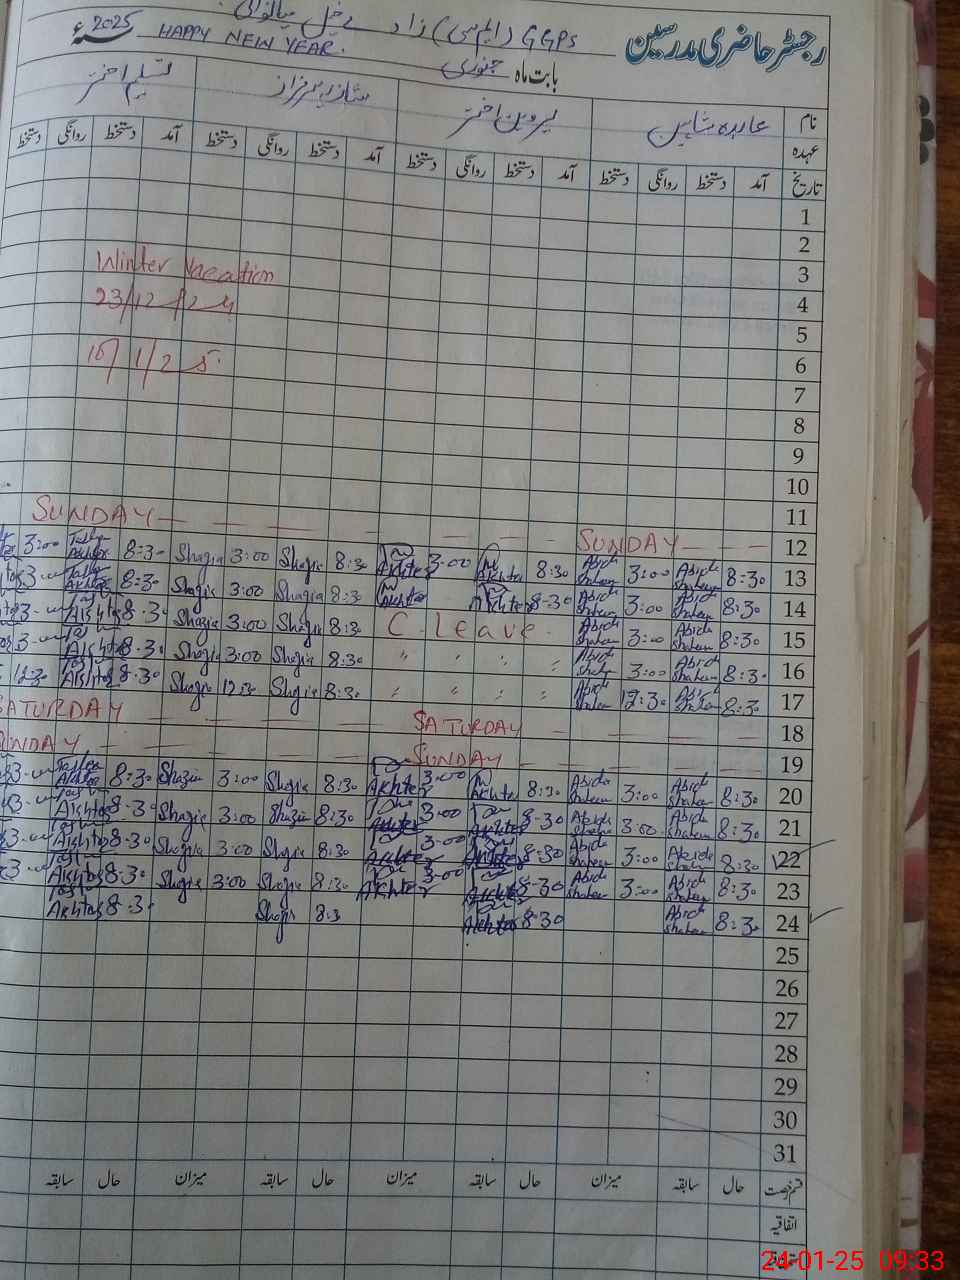 رجسٹر حاضری مدرسین
GGPS (ایم سی) زاد خیل میانوالی
HAPPY NEW YEAR.
2025
بابت ماہ جنوری
نام عابدہ شاہین پروین اختر شازیہ سرفراز تسلیم اختر
عہدہ
تاریخ آمد دستخط روانگی دستخط آمد دستخط روانگی دستخط آمد دستخط روانگی دستخط آمد دستخط روانگی دستخط
1
2
Winter Vacation 3
23/12/24 4
5
1/25 6
7
8
9
10
11
SUNDAY SUNDAY 12
3:00 Akhtar 8:30 Shazia 3:00 Shazia 8:30 Akhter 3:00 Akhter 8:30 Abida Shaheen 3:00 Abida Shaheen 8:30 13
3 Akhtar 8:30 Shazia 3:00 Shazia 8:30 Akhter Akhter 8-30 Abida Shaheen 3:00 Abida Shaheen 8:30 14
3 Akhtar 8.30 Shazia 3:00 Shazia 8:30 C. Leave. Abida Shaheen 3:00 Abida Shaheen 8:30 15
3 Akhtar 8.30 Shazia 3:00 Shazia 8:30 " " " " Abida Shaheen 3:00 Abida Shaheen 8:30 16
12:30 Akhtar 8.30 Shazia 12:30 Shazia 8:30 " " " " Abida Shaheen 12:30 Abida Shaheen 8:30 17
SATURDAY SATURDAY 18
SUNDAY SUNDAY 19
3 Akhtar 8:30 Shazia 3:00 Shazia 8:30 Akhter 3:00 Akhter 8:30 Abida Shaheen 3:00 Abida Shaheen 8:30 20
3 Akhtar 8.30 Shazia 3:00 Shazia 8:30 Akhter 3:00 Akhter 8-30 Abida Shaheen 3:00 Abida Shaheen 8:30 21
3 Akhtar 8.30 Shazia 3:00 Shazia 8:30 Akhter 3:00 Akhter 8:30 Abida Shaheen 3:00 Abida Shaheen 8:30 22
3 Akhtar 8.30 Shazia 3:00 Shazia 8:30 Akhter 3:00 Akhter 8-30 Abida Shaheen 3:00 Abida Shaheen 8:30 23
Akhtar 8.30 Shazia 8:3 Akhter 8-30 Abida Shaheen 8:30 24
25
26
27
28
29
30
31
قسم رخصت حال سابقہ میزان حال سابقہ میزان حال سابقہ میزان حال سابقہ
اتفاقیہ
24-01-25 09:33